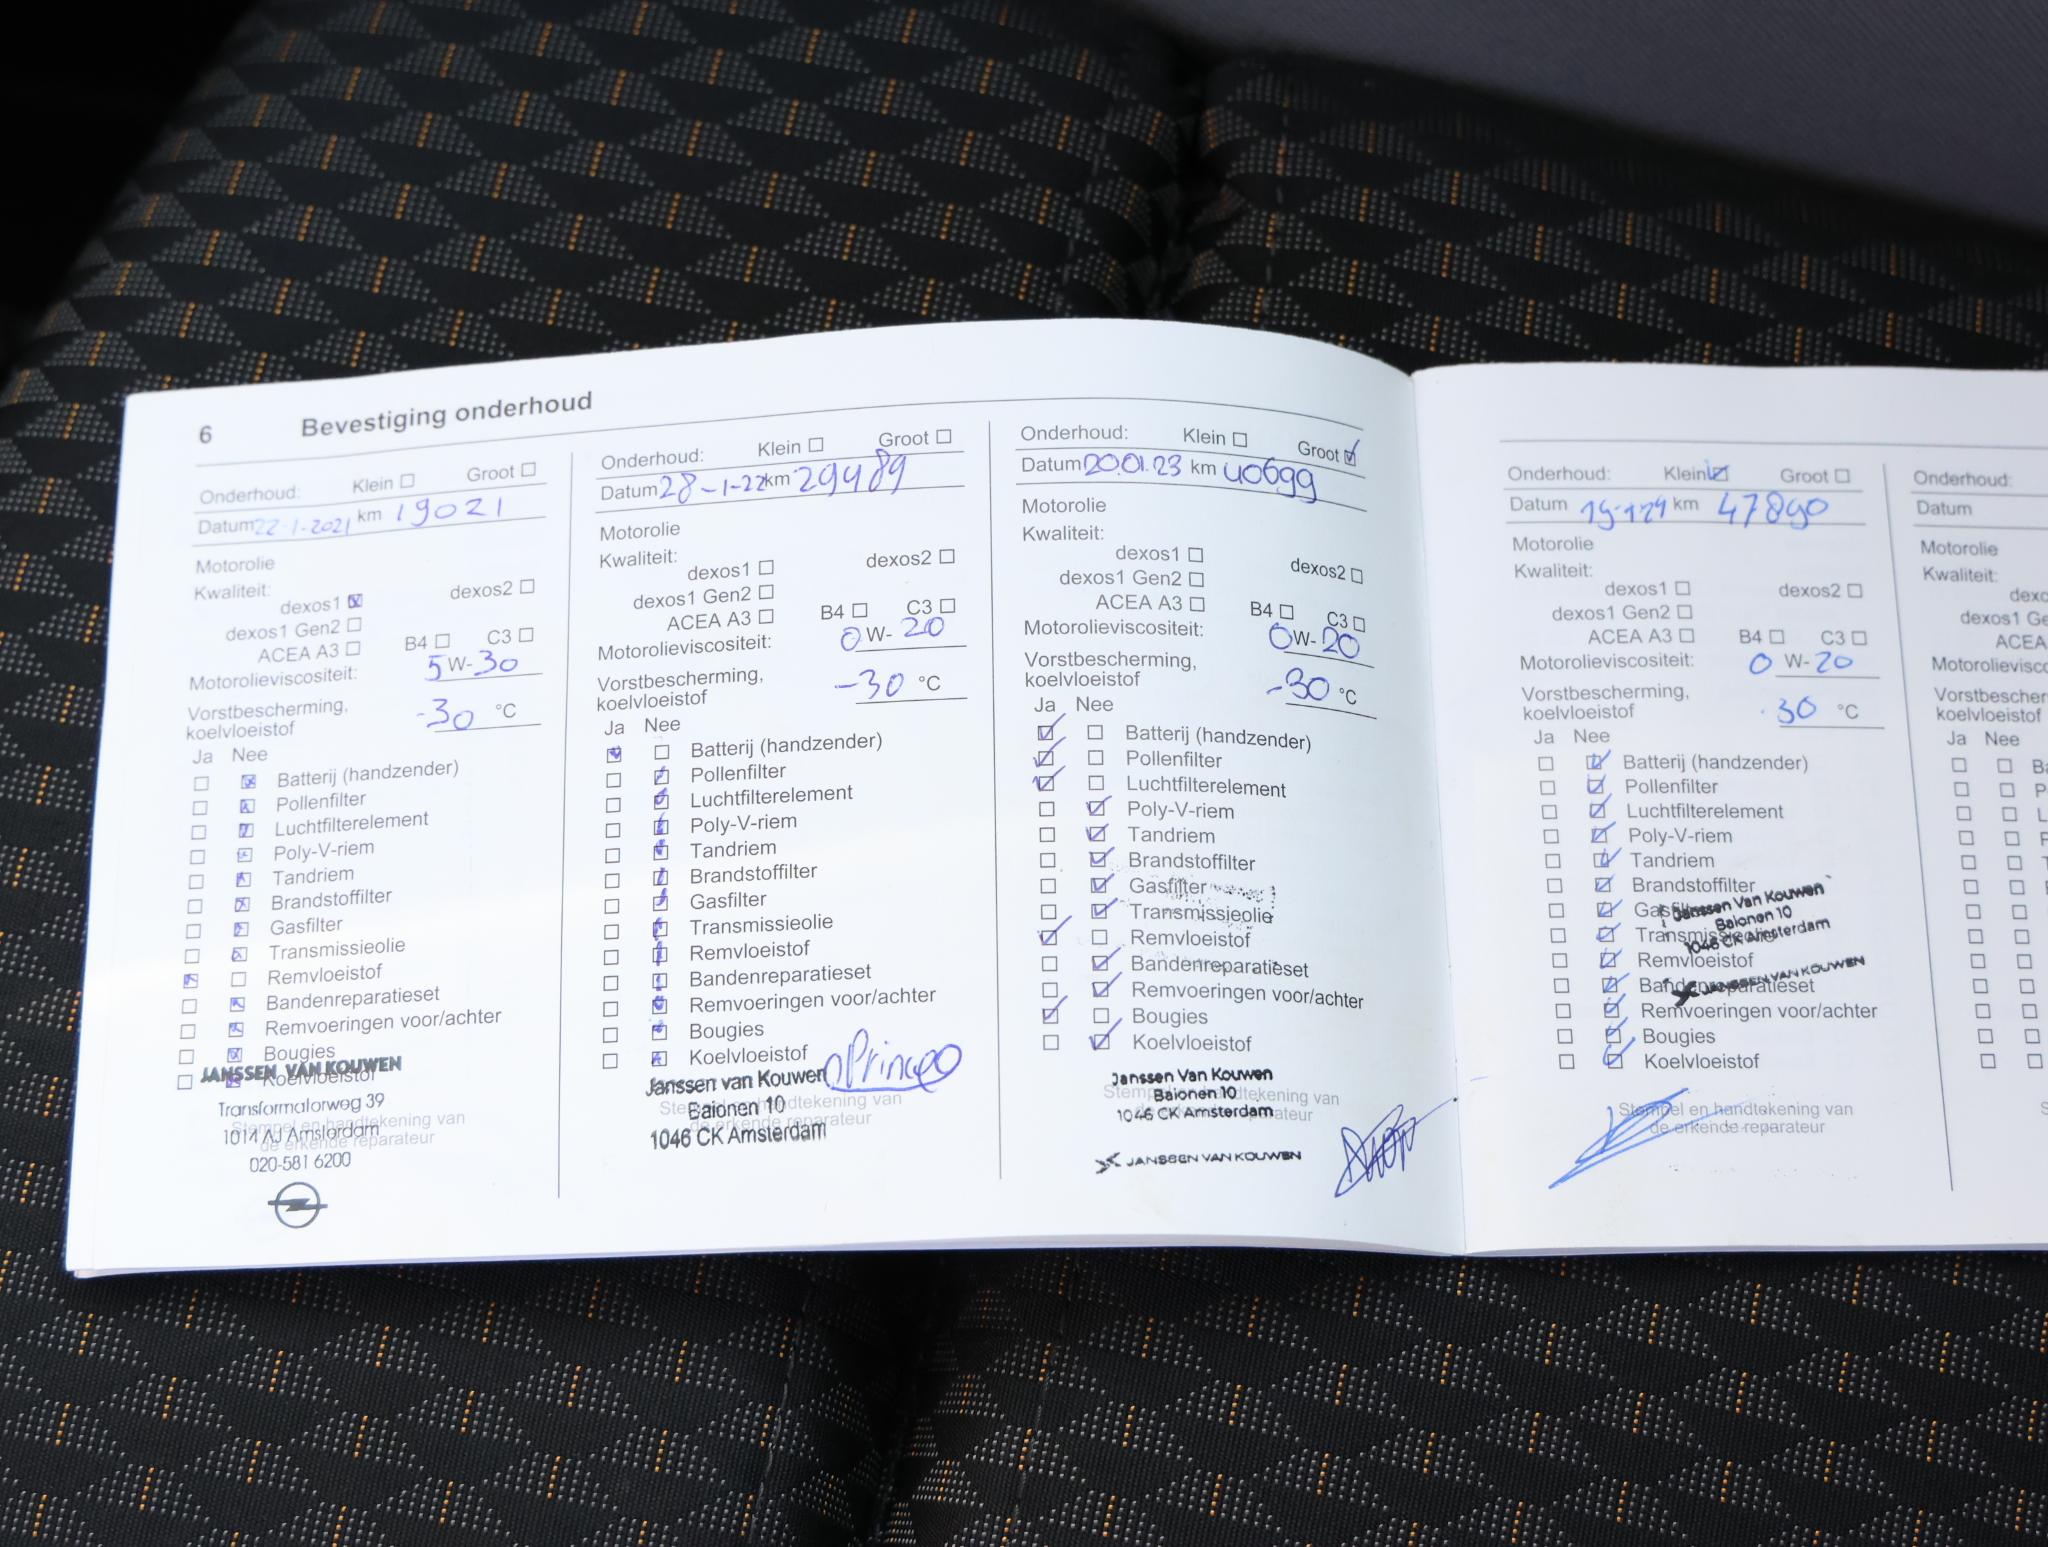 6 Bevestiging onderhoud
Onderhoud: Klein Groot
Datum 22-1-2021 km 19021
Motorolie
Kwaliteit:
dexos1 dexos2
dexos1 Gen2
ACEA A3 B4 C3
Motorolieviscositeit: 5 W-30
Vorstbescherming,
koelvloeistof -30 °C
Ja Nee
Batterij (handzender)
Pollenfilter
Luchtfilterelement
Poly-V-riem
Tandriem
Brandstoffilter
Gasfilter
Transmissieolie
Remvloeistof
Bandenreparatieset
Remvoeringen voor/achter
Bougies
Koelvloeistof
JANSSEN VAN KOUWEN
Transformatorweg 39
1014 AJ Amsterdam
020-581 6200
Stempel en handtekening van
de erkende reparateur
Onderhoud: Klein Groot
Datum 28-1-22 km 29489
Motorolie
Kwaliteit:
dexos1 dexos2
dexos1 Gen2
ACEA A3 B4 C3
Motorolieviscositeit: 0 W-20
Vorstbescherming,
koelvloeistof -30 °C
Ja Nee
Batterij (handzender)
Pollenfilter
Luchtfilterelement
Poly-V-riem
Tandriem
Brandstoffilter
Gasfilter
Transmissieolie
Remvloeistof
Bandenreparatieset
Remvoeringen voor/achter
Bougies
Koelvloeistof
Janssen van Kouwen
Baionen 10
1046 CK Amsterdam
Stempel en handtekening van
de erkende reparateur
Onderhoud: Klein Groot
Datum 20.01.23 km 40699
Motorolie
Kwaliteit:
dexos1 dexos2
dexos1 Gen2
ACEA A3 B4 C3
Motorolieviscositeit: 0W-20
Vorstbescherming,
koelvloeistof -30 °C
Ja Nee
Batterij (handzender)
Pollenfilter
Luchtfilterelement
Poly-V-riem
Tandriem
Brandstoffilter
Gasfilter
Transmissieolie
Remvloeistof
Bandenreparatieset
Remvoeringen voor/achter
Bougies
Koelvloeistof
Janssen Van Kouwen
Baionen 10
1046 CK Amsterdam
JANSSEN VAN KOUWEN
Stempel en handtekening van
de erkende reparateur
Onderhoud: Klein Groot
Datum km 47890
Motorolie
Kwaliteit:
dexos1 dexos2
dexos1 Gen2
ACEA A3 B4 C3
Motorolieviscositeit: 0 W-20
Vorstbescherming,
koelvloeistof -30 °C
Ja Nee
Batterij (handzender)
Pollenfilter
Luchtfilterelement
Poly-V-riem
Tandriem
Brandstoffilter
Gasfilter
Transmissieolie
Remvloeistof
Bandenreparatieset
Remvoeringen voor/achter
Bougies
Koelvloeistof
Janssen Van Kouwen
Baionen 10
1046 CK Amsterdam
JANSSEN VAN KOUWEN
Stempel en handtekening van
de erkende reparateur
Onderhoud:
Datum
Motorolie
Kwaliteit:
dexo
dexos1 Ge
ACEA
Motorolievisco
Vorstbescher
koelvloeistof
Ja Nee